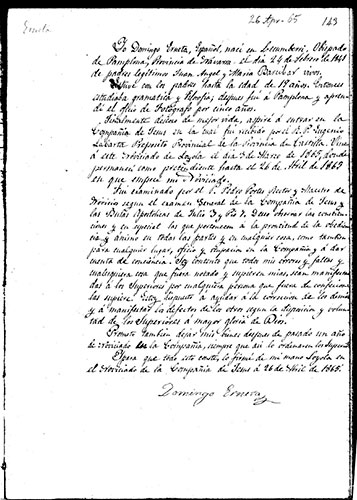 Erneta
26 Apr. 65
143
Yo Domingo Erneta, Español, nací en Lecumberri, Obispado
de Pamplona, Provincia de Navarra el dia 24 de Febrero de 1841
de padres legitimos Juan Angel y Maria vivos.
Estuve con los padres hasta la edad de 19 años. Entonces
estudiaba gramatica y filosofia; despues fui a Pamplona y apren-
dí el oficio de Fotógrafo por cinco años.
Finalmente deseoso de mejor vida, aspiré á entrar en la
Compañia de Jesus en la cual fui recibido por el R. P. Eugenio
Labarta Preposito Provincial de la Provincia de Castilla. Vine
á este Noviciado de Loyola el dia de Marzo de 1865, donde
permanecí como pretendiente hasta el 26 de Abril de 1865
en que empecé mi Noviciado.
Fui examinado por el P. Pedro Rector y Maestro de
Novicios segun el examen General de la Compañia de Jesus y
las Bulas Apostolicas de Julio 3 y Pio V. Deseo observar las constitu-
ciones y en especial las que pertenecen a la prontitud de la obedien-
cia y animo en todas las partes y en cualquier cosa, como tambien
para cualquier lugar, oficio y en la Compañia y á dar
cuenta de conciencia. Soy contento que todos mis errores y faltas y
cualesquiera cosa que fuera notado y supieren mias, sean manifesta-
das á los Superiores por cualquiera persona que fuera de confesion
las supiere. Estoy dispuesto á ayudar á la correccion de los demás
y á manifestar los defectos de los otros segun la disposicion y volun-
tad de los Superiores á mayor gloria de Dios.
Prometo tambien dejar mis bienes despues de pasado un año
de Noviciado en la Compañia, siempre que asi lo ordenaren los Superiores.
que todo esto consta, lo firmé de mi mano Loyola en
el Noviciado de la Compañia de Jesus á 26 de Abril de 1865.
Domingo Erneta